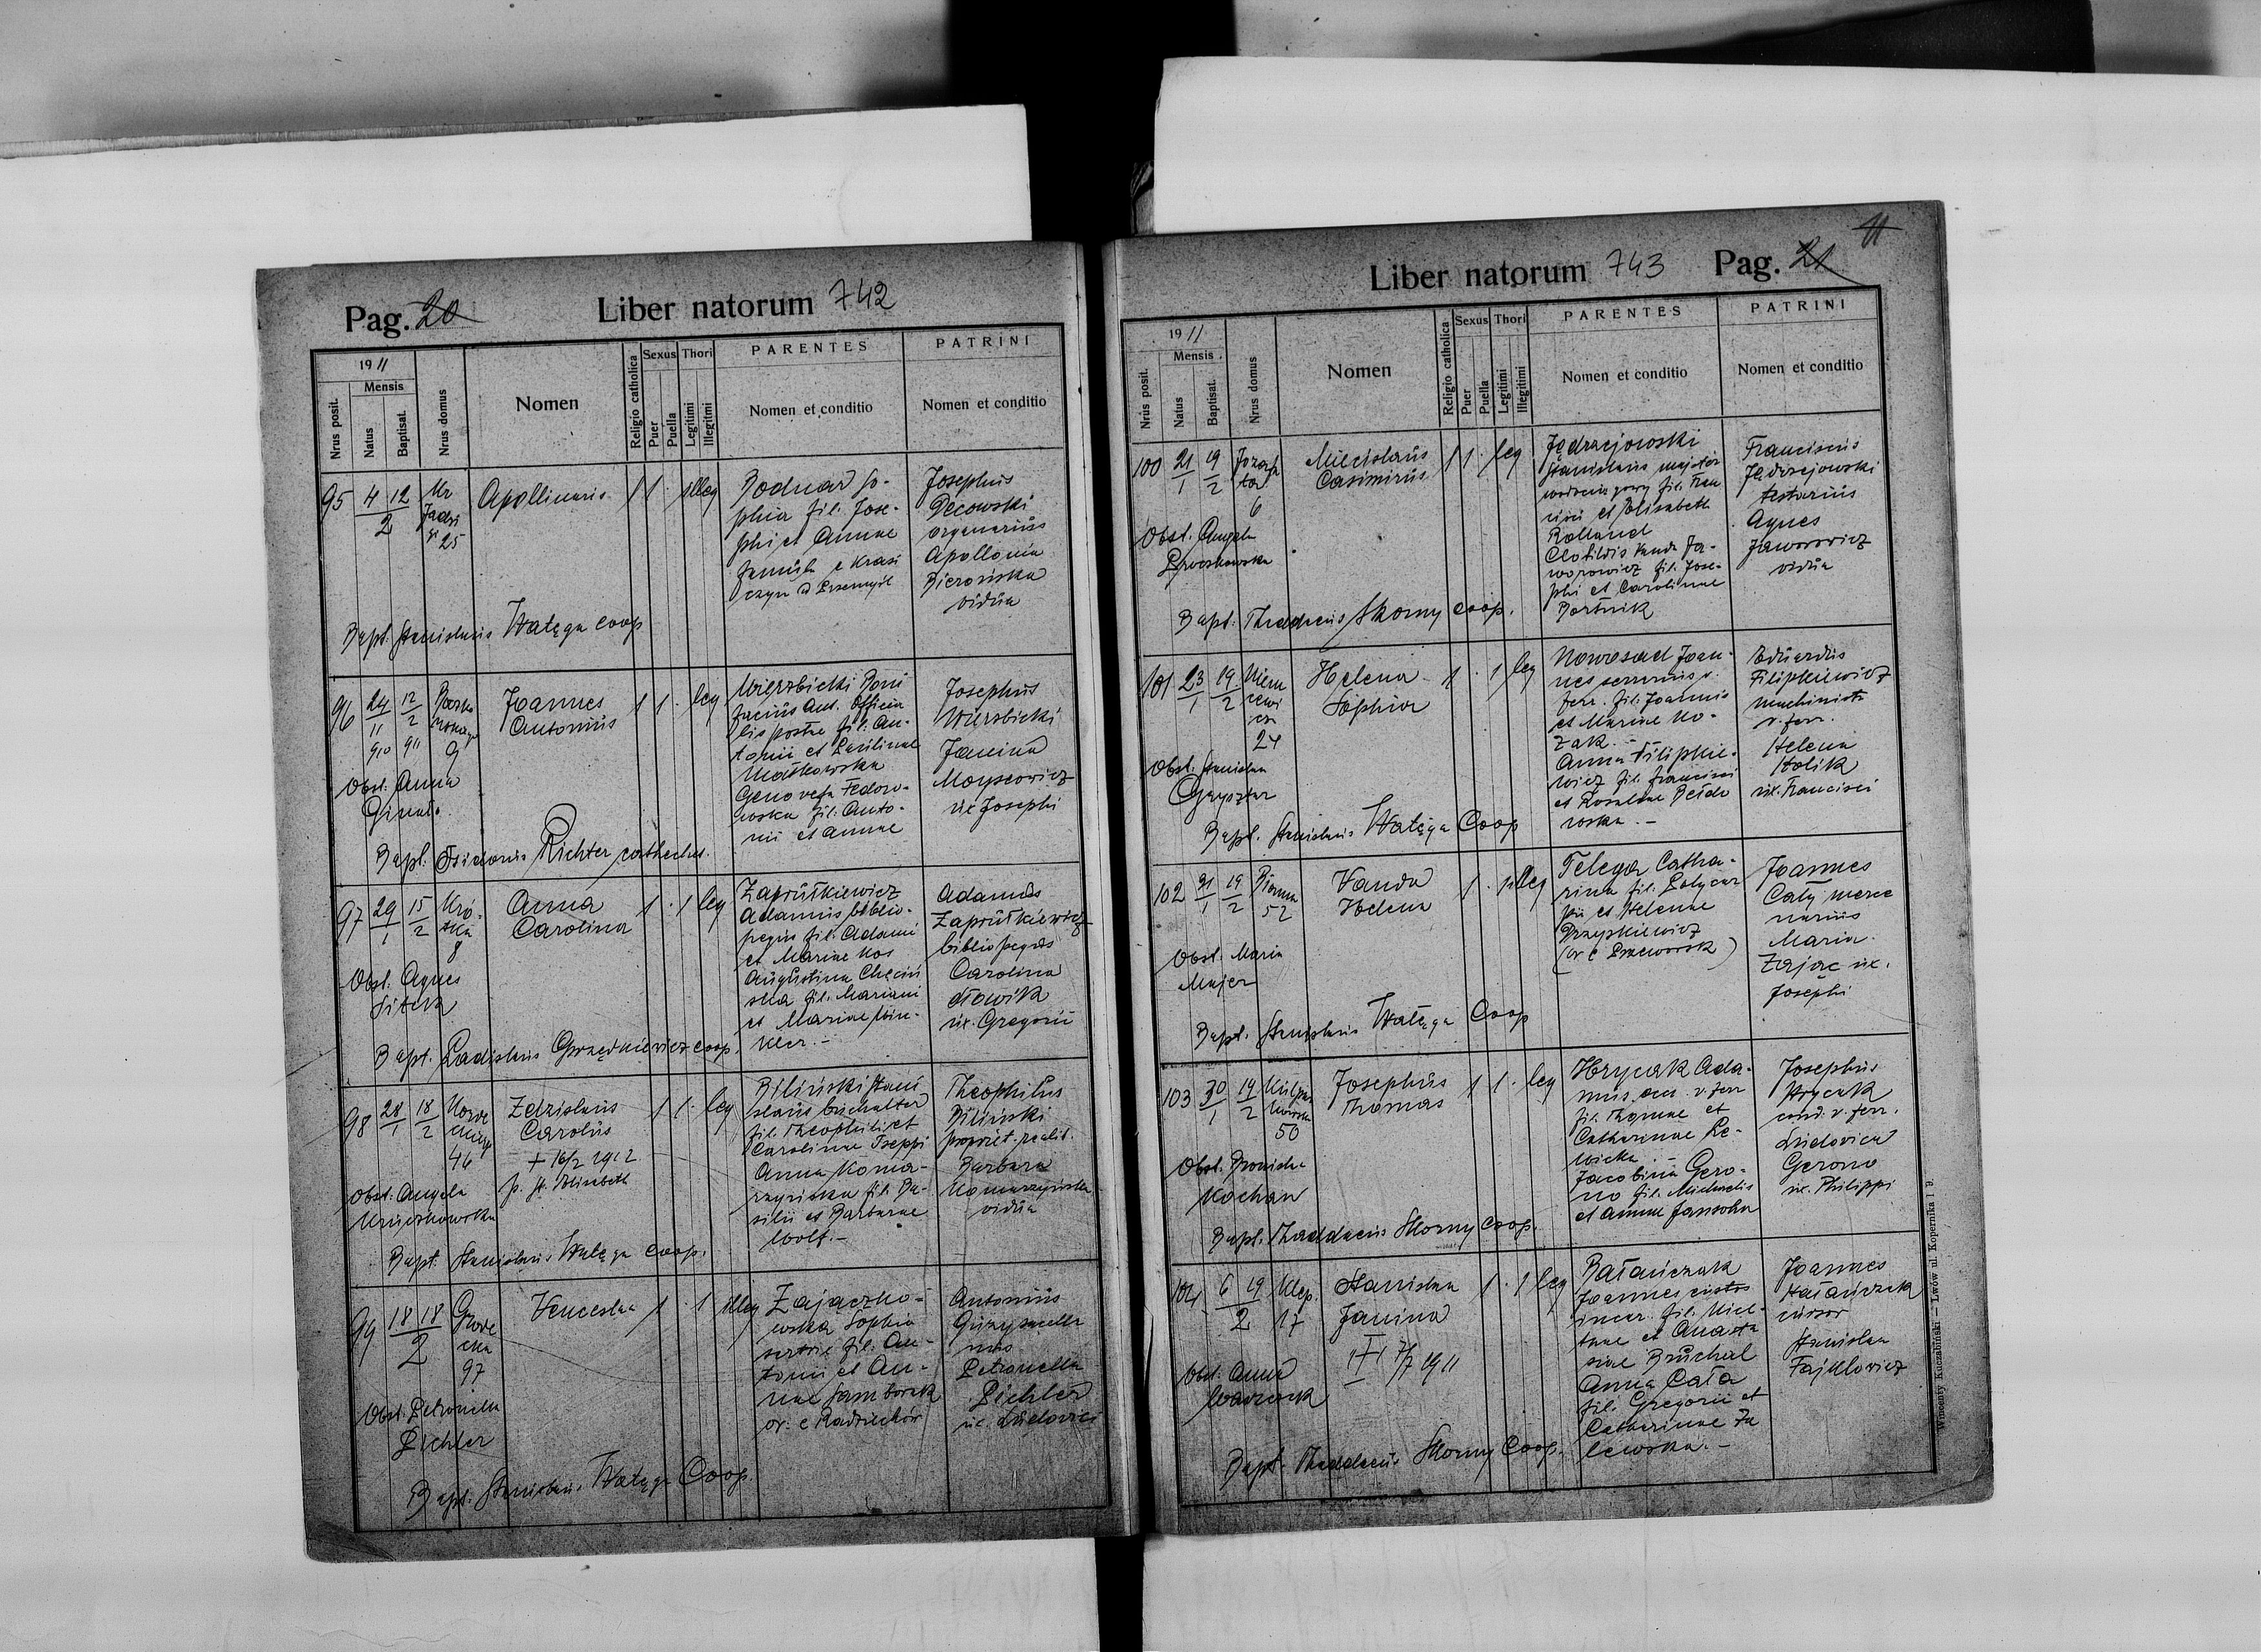 Pag. 20 Liber natorum 742
1911
Mensis
Nrus posit.
Natus
Baptisat.
Nrus domus
Nomen
Religio catholica
Sexus
Puer
Puella
Thori
Legitimi
Illegitmi
PARENTES
Nomen et conditio
PATRINI
Nomen et conditio
95
4 12
2
25
Apollinaris
1 1 illeg
Bodnar So-
phia fil. Jose-
phi et Annae
famula e Krasi
czyn ad Przemyśl
Josephus
Decowski
organarius
Apollonia
vidua
Bapt. Stanislaus Watęga coop
96
24 12
11 2
910 911
9
Joannes
Antonius
1 1 leg
Wierzbicki Boni
facius Ant. officia
lis postae fil. An-
tonii et Paulinae
Małkowska
Genovefa Fedoro-
wska fil. Anto-
nii et Annae
Josephus
Wierzbicki
Janina
Moyseowicz
ux. Josephi
Obst. Anna
Bapt. Isidorus Richter cathechet.
97
29 15
1 2
Kró-
tka
8
Anna
Carolina
1 1 leg
Zaprutkiewicz
Adamus biblio-
pegus fil. Adami
et Mariae Kos
Augustina Chęciń
ska fil. Mariani
et Mariae Win-
kler.-
Adamus
Zaprutkiewicz
bibliopegus
Carolina
Słowik
ux. Gregorii
Obst. Agnes
Sitek
Bapt. Ladislaus Grzędkiewicz coop.
98
28 18
1 2
46
Zdzislaus
Carolus
+ 16/2 1912
p. St. Elisabeth
1 1 leg
Biliński Stani
slaus buchalter
fil. Theophili et
Carolinae Tseppi
Anna Koma-
rzyńska fil. Ba-
silii et Barbarae
Wolf.-
Theophilus
Biliński
propriet. realit.
Barbara
Komarzyńska
vidua
Obst. Angela
Kruczkowska
Bapt. Stanislaus Watęga coop.
99
18 18
2
Grode
cka
97
Venceslaa
1 1 illeg
Zajączko-
wska Sophia
sartrix fil. An-
tonii et An-
nae Samborak
or. e Radziechów
Antonius
Petronella
Pichler
ux. Ludovici
Obst. Petronella
Pichler
Bapt. Stanislaus Watęga Coop.
Liber natorum 743 Pag. 21
11
1911
Mensis
Nrus posit.
Natus
Baptisat.
Nrus domus
Nomen
Religio catholica
Sexus
Puer
Puella
Thori
Legitimi
Illegitimi
PARENTES
Nomen et conditio
PATRINI
Nomen et conditio
100
21 19
1 2
6
Miecislaus
Casimirus
1 1 leg
Jędrzejowski
Stanislaus majster
fil. Fran
cisci et Elisabeth
Rolland
Clotildis Vanda Ja-
worowicz fil. Jose-
phi et Carolinae
Bortnik
Franciscus
Jędrzejowski
Agnes
Jaworowicz
vidua
Obst. Angela
Bapt. Thaddaeus Skorny coop.
101
23 19
1 2
Niem
cewi
cza
24
Helena
Sophia
1 1 leg
Nowosad Joan-
nes
ferr. fil. Joannis
et Mariae Ko-
zak.-
Anna Filipkie-
wicz fil. Francisci
et Rosaliae
wska.-
Eduardus
Filipkiewicz
machinista
v. ferr.
Helena
Stolik
ux. Francisci
Obst. Stanislaa
Bapt. Stanislaus Watęga Coop
102
31 19
1 2
52
Vanda
Helena
1 1 illeg
Telega Catha-
rina fil. Polycar
pii et Helenae
Drzyskiewicz
(or e Przeworsk)
Joannes
Cały merce
narius
Maria
Zając ux.
Josephi
Obst. Maria
Majer
Bapt. Stanislaus Watęga Coop
103
30 19
1 2
50
Josephus
Thomas
1 1 leg
Hrycak Ada-
mus v. ferr
fil. Thomae et
Catharinae Le-
wicka.-
Jacobina Gero-
no fil. Michaelis
et Annae Jansohn
Josephus
Hrycak
cond. v. ferr.
Ludovica
Gerono
ux. Philippi
Obst. Bronisla
Kochan
Bapt. Thaddaeus Skorny Coop.
104
6 19
2
Klep.
17
Stanislaa
Janina
+ 7/7 1911
1 1 leg
Bałańczuk
Joannes custos
incar. fil. Mict-
tae et Anasta
siae Bruchal
Anna Cała
fil. Gregorii et
Catharinae Za
lewska.-
Joannes
Hałańczuk
cursor
Stanislaa
Fajklowicz
Obst. Anna
Wawrzak
Bapt. Thaddaeus Skorny Coop.
Wincenty Kuczabiński — Lwów ul. Kopernika l 9.